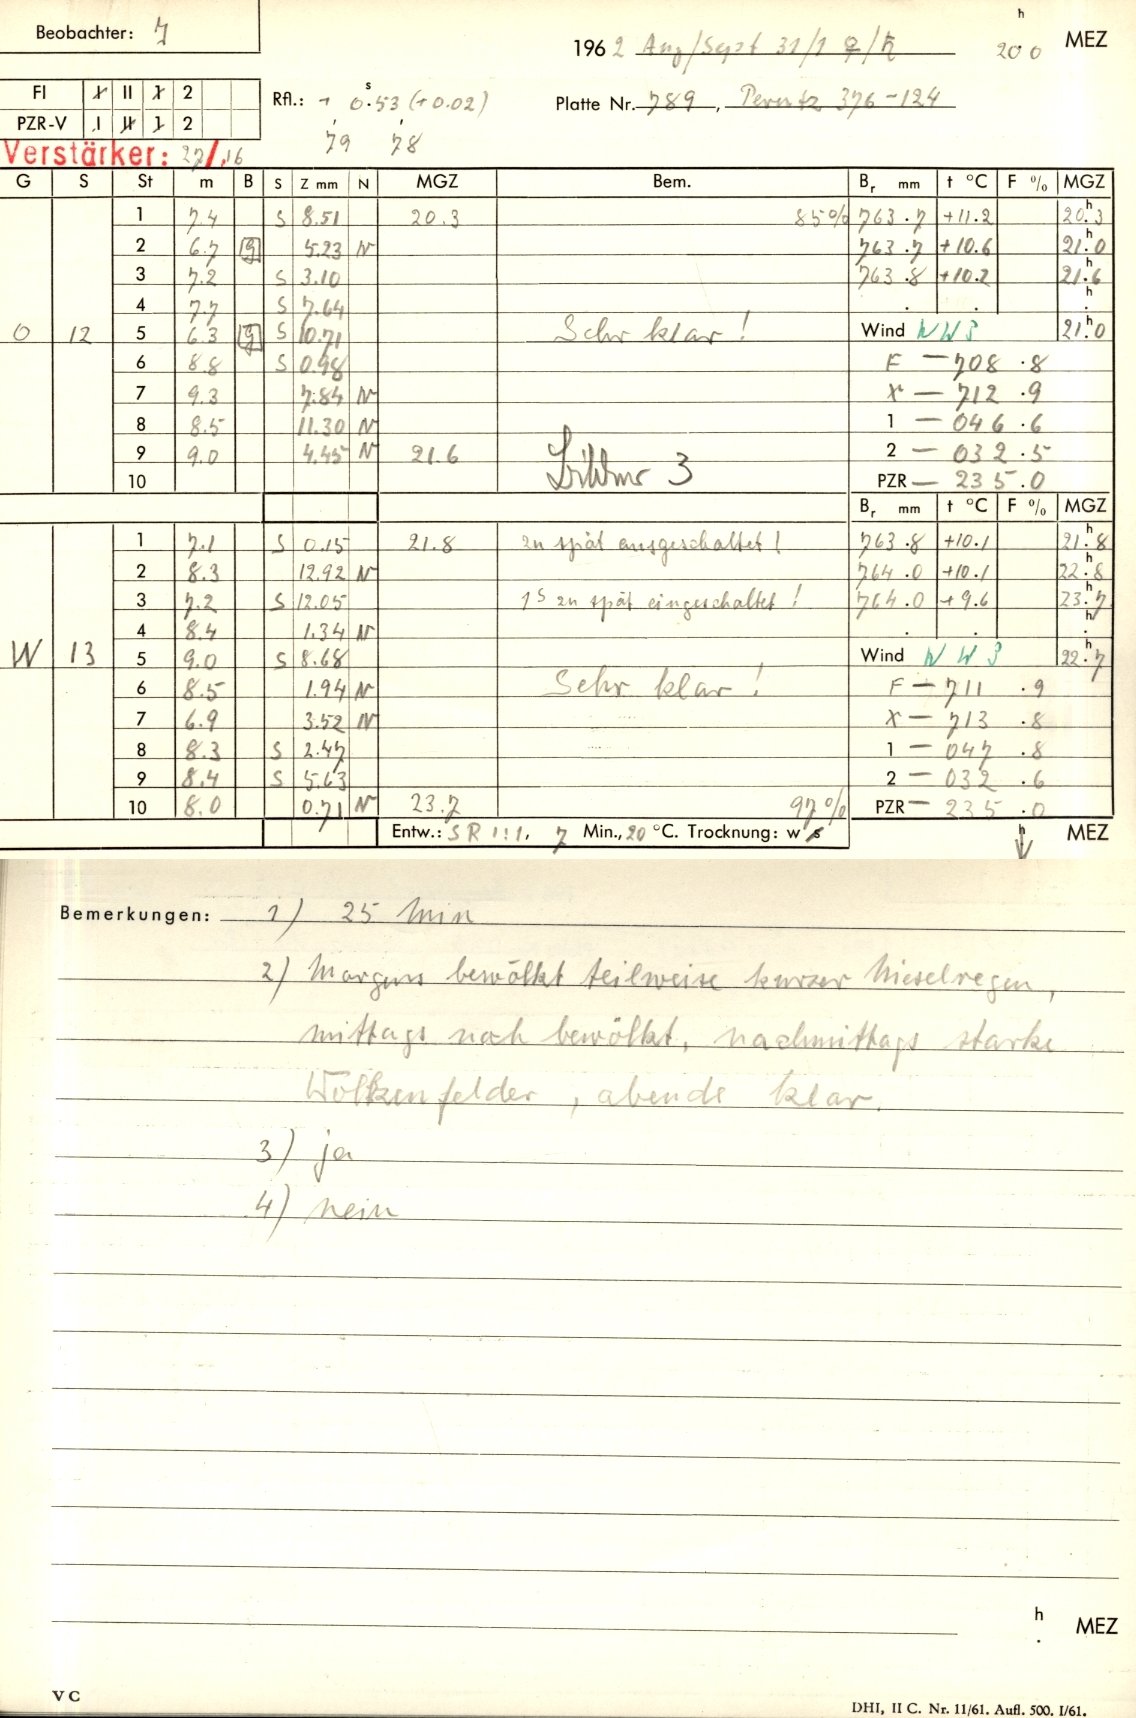 Beobachter: 7
1962 Aug/Sept 31/1 ♀/♄ 20 h 0 MEZ
FI I II X 2
PZR-V I II 1 2
Rfl.: + 0.s53 (+0.02)
Platte Nr. 789, Perutz 376-124
79 78
Verstärker: 27/.16
G S St m B S Z mm N MGZ Bem. Br mm t °C F % MGZ
1 7.4 S 8.51 20.3 85% 763.7 +11.2 20.h3
2 6.7 g 5.23 N 763.7 +10.6 21.h0
3 7.2 S 3.10 763.8 +10.2 21.h6
4 7.7 S 7.64 . . h.
O 12 5 6.3 g S 10.71 Sehr klar! Wind NW3 21.h0
6 8.8 S 0.98 F — 708.8
7 9.3 7.84 N X — 712.9
8 8.5 11.30 N 1 — 046.6
9 9.0 4.45 N 21.6 3 2 — 032.5
10 PZR — 235.0
Br mm t °C F % MGZ
1 7.1 S 0.15 21.8 zu spät ausgeschaltet! 763.8 +10.1 21.h8
2 8.3 12.92 N 764.0 +10.1 22.h8
3 7.2 S 12.05 1s zu spät eingeschaltet! 764.0 +9.6 23.h7
4 8.4 1.34 N . . h.
W 13 5 9.0 S 8.68 Wind NW3 22.h7
6 8.5 1.94 N Sehr klar! F — 711.9
7 6.9 3.52 N X — 713.8
8 8.3 S 2.47 1 — 047.8
9 8.4 S 5.63 2 — 032.6
10 8.0 0.71 N 23.7 97% PZR — 235.0
Entw.: SR 1:1, 7 Min., 20 °C. Trocknung: w s h MEZ
Bemerkungen: 1) 25 Min
2) Morgens bewölkt teilweise kurzer Nieselregen,
mittags noch bewölkt, nachmittags starke
Wolkenfelder, abends klar.
3) ja
4) nein
h . MEZ
V C
DHI, II C. Nr. 11/61. Aufl. 500. I/61.